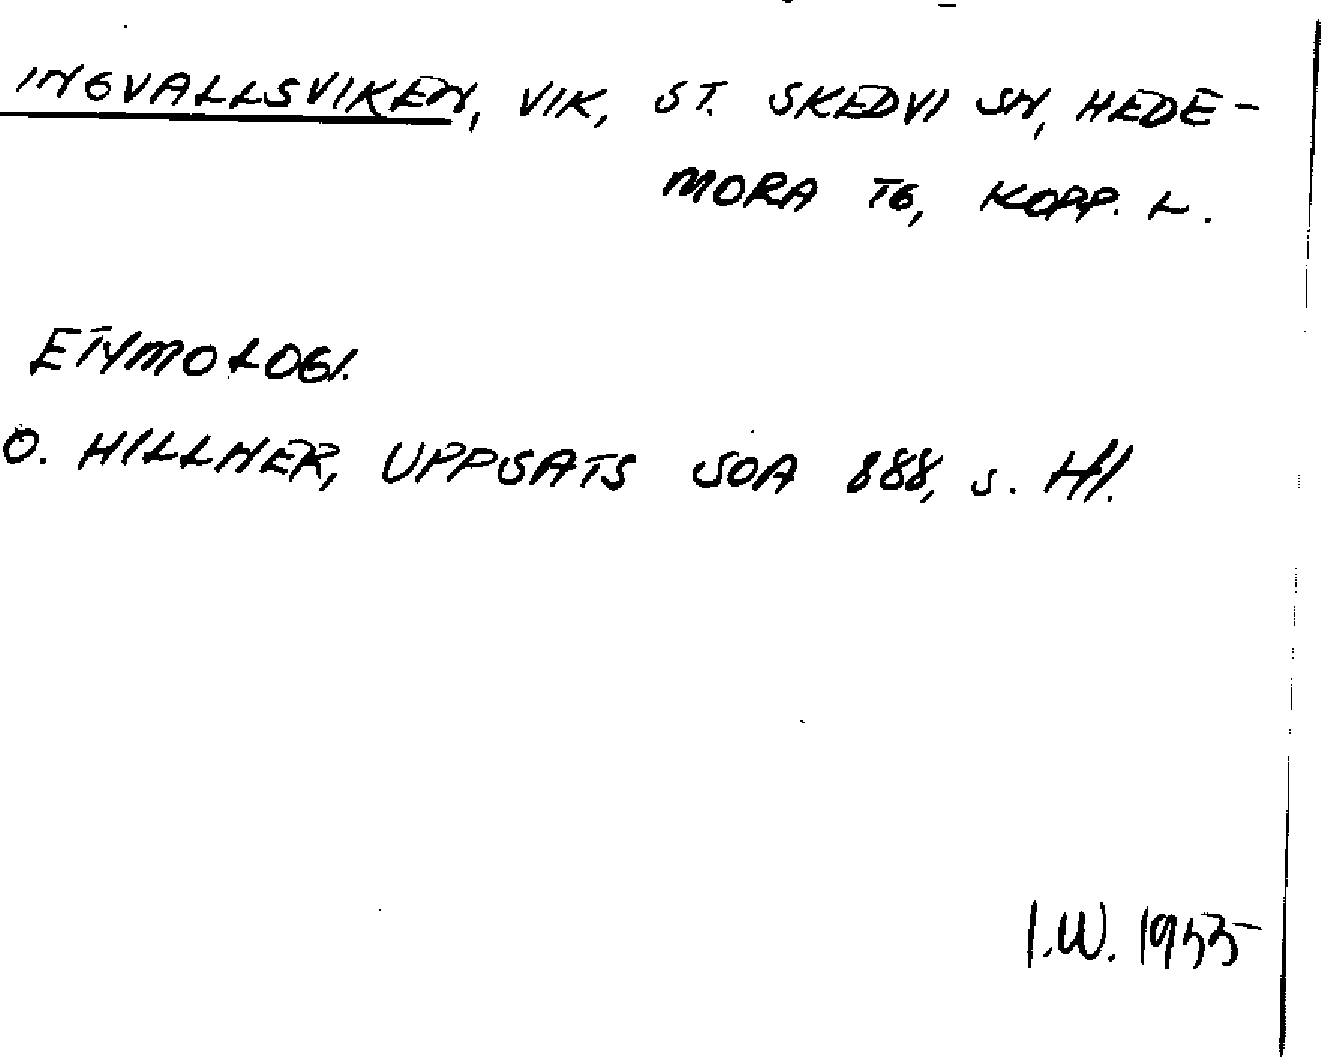 INGVALLSVIKEN, VIK, ST. SKEDVI SN, HEDE-
MORA TG, KOPP. L.
ETYMOLOGI.
O. HILLNER, UPPSATS SOA 888, S. 41.
I.W. 1955